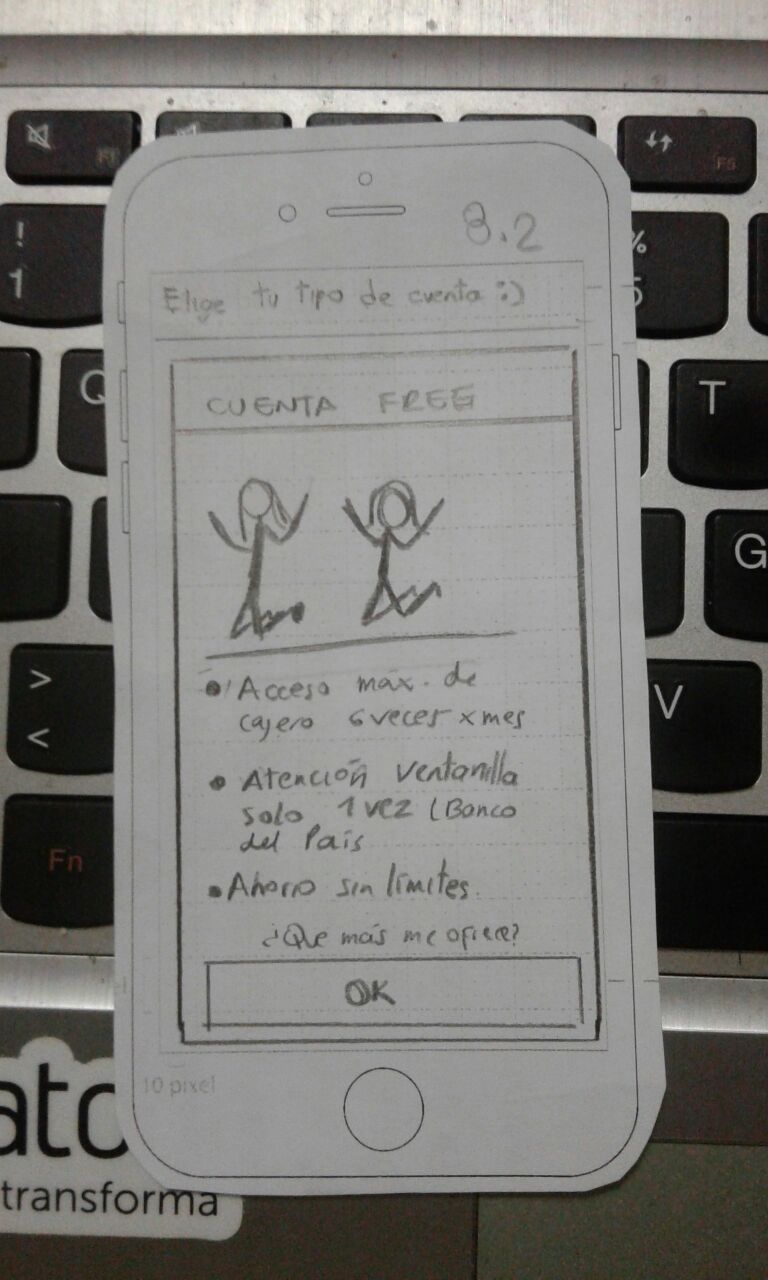 F1
F5
!
1
%
5
Q
T
G
>
<
V
Fn
8.2
Elige tu tipo de cuenta :)
CUENTA FREE
• Acceso max. de
cajero 6 veces x mes
• Atención ventanilla
solo 1 vez (Banco
del País
• Ahorro sin límites.
¿Que más me ofrece?
OK
10 pixel
ato
transforma